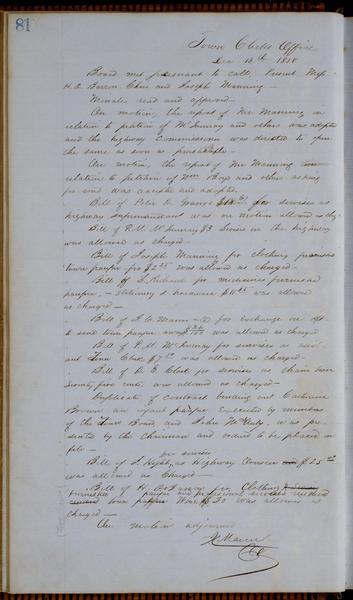 81
Town Clerks Office
Dec 13th 1858
Board met pursuant to call, Present Mess
H. O. Barron Chm and Joseph Manning —
Minutes read and approved —
On motion, the report of Mr Manning in
relation to petition of McMurray and others was adopted
and the highway Commissioner was directed to open
the same as soon as practicable —
On motion, the report of Mr Manning in
relation to petition of Wm Boys and others asking
for road was accepted and adopted.
Bill of Peter for services as
highway superintendent was on motion allowed as chg
Bill of P. M. McMurray $3 Services on the highway
was allowed as charged —
Bill of Joseph Manning for clothing
town pauper for $2.25 was allowed as charged —
Bill of S. for medicines furnished
pauper — stationery & $11.25 was allowed
as charged —
Bill of for exchange on dft
to send town pauper was allowed as charged
Bill of P. M. McMurray for services as assist
ant Town Clerk $7.50 was allowed as charged —
Bill of O. E. Clark for services as chain
Seventy five cents. was allowed as charged —
Duplicate of contract binding out Catherine
Brown an infant pauper executed by members
of the Town Board and John McNulty, was pre-
sented by the Chairman and ordered to be placed on
file —
for services
Bill of as Highway Overseer $25
was allowed as charged —
Bill of H. for Clothing
furnished a pauper and professional services rendered
town pauper was allowed as
charged —
On motion adjourned
Clk